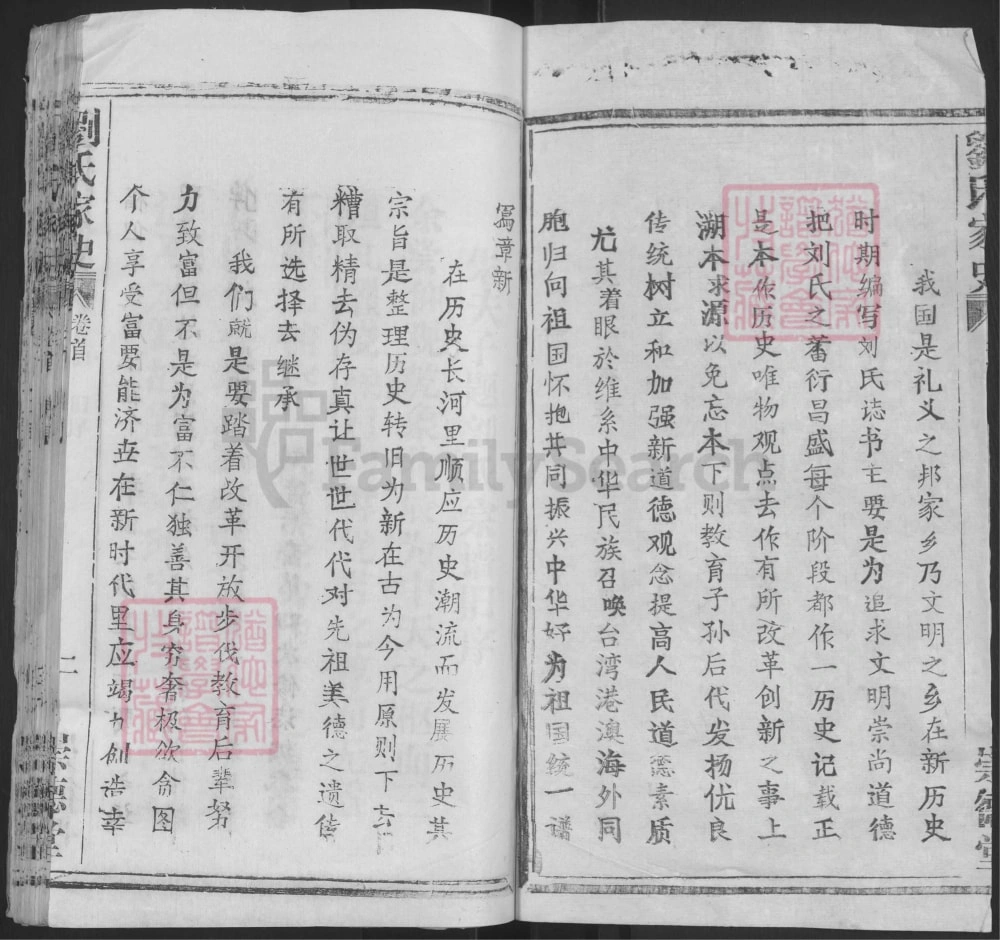 我国是礼义之邦家乡乃文明之乡在新历史
时期编写刘氏谱书主要是为追求文明崇尚道德
把刘氏之蕃衍昌盛每个阶段都作一历史记载正
是本作历史唯物观点去作有所改革创新之事上
溯本求源以免忘本下则教育子孙后代发扬优良
传统树立和加强新道德观念提高人民道德素质
尤其着眼於维系中华民族召唤台湾港澳海外同
胞归向祖国怀抱共同振兴中华好为祖国统一谱
写章新
在历史长河里顺应历史潮流而发展历史其
宗旨是整理历史转旧为新在古为今用原则下去
糟取精去伪存真让世世代代对先祖美德之遗传
有所选择去继承
我们就是要踏着改革开放步伐教育后辈努
力致富但不是为富不仁独善其身穷奢极欲贪图
个人享受富要能济世在新时代里应竭力创造幸
劉氏家史
卷首
二
FamilySearch